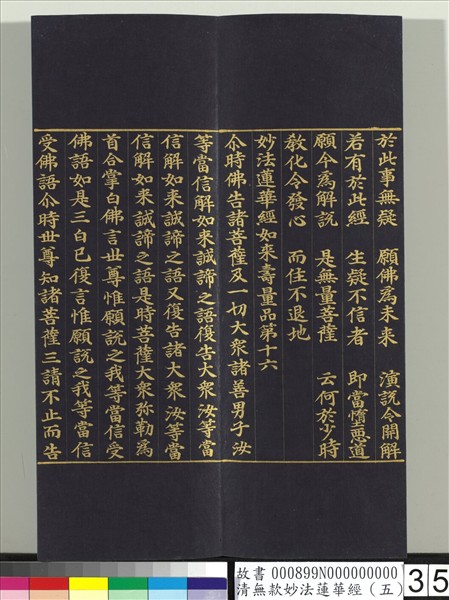 於此事無疑　願佛為未來　演說令開解
若有於此經　生疑不信者　即當墮惡道
願今為解說　是無量菩薩　云何於少時
教化令發心　而住不退地
妙法蓮華經如來壽量品第十六
尒時佛告諸菩薩及一切大眾諸善男子汝
等當信解如來誠諦之語復告大眾汝等當
信解如來誠諦之語又復告諸大眾汝等當
信解如來誠諦之語是時菩薩大眾弥勒為
首合掌白佛言世尊惟願說之我等當信受
佛語如是三白已復言惟願說之我等當信
受佛語尒時世尊知諸菩薩三請不止而告
故書 000899N000000000
清無款妙法蓮華經（五）
35